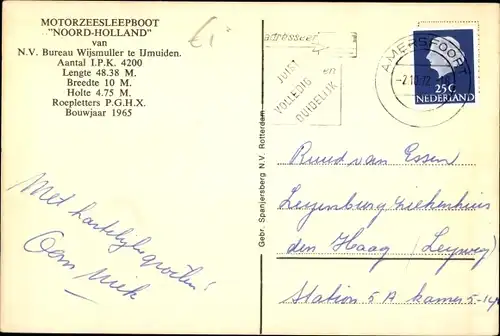 MOTORZEESLEEPBOOT
"NOORD-HOLLAND"
van
N.V. Bureau Wijsmuller te IJmuiden.
Aantal I.P.K. 4200
Lengte 48.38 M.
Breedte 10 M.
Holte 4.75 M.
Roepletters P.G.H.X.
Bouwjaar 1965
adresseer
JUIST en
VOLLEDIG
DUIDELIJK
AMERSFOORT
-2.10.72
25c
NEDERLAND
Gebr. Spanjersberg N.V. Rotterdam
Met hartelijke groeten!
Oom Niek
Ruud van Essen
Leyenburg ziekenhuis
den Haag (Leyweg)
Station 5A kamer 5-14